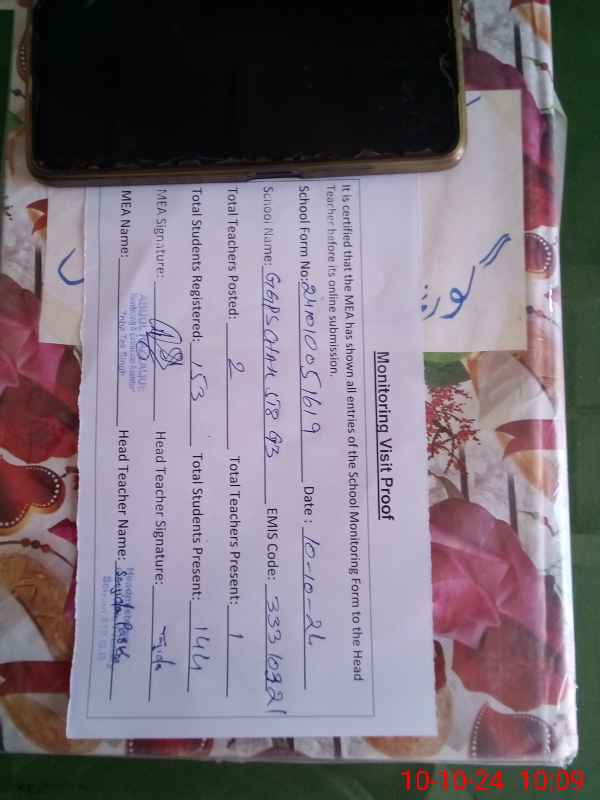 Monitoring Visit Proof
It is certified that the MEA has shown all entries of the School Monitoring Form to the Head
Teacher before its online submission.
School Form No: 241010051619 Date: 10-10-24
School Name: GGPS CHAK 578 GB EMIS Code: 33310321
Total Teachers Posted: 2 Total Teachers Present: 1
Total Students Registered: 153 Total Students Present: 144
MEA Signature: Head Teacher Signature:
MEA Name: Head Teacher Name:
Toba Tek Singh
10-10-24 10:09